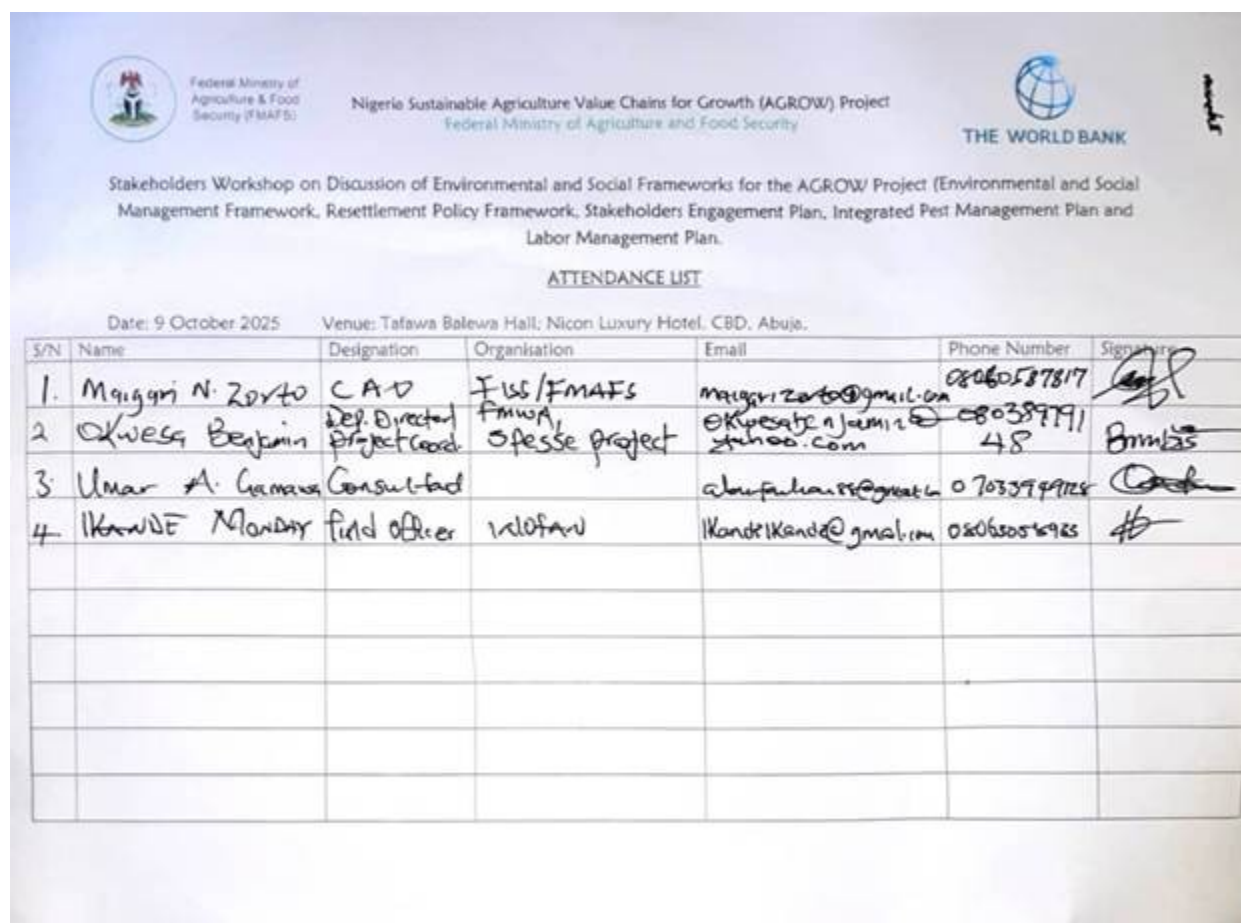 Federal Ministry of
Agriculture & Food
Security (FMAFS)
Nigeria Sustainable Agriculture Value Chains for Growth (AGROW) Project
Federal Ministry of Agriculture and Food Security
THE WORLD BANK
Stakeholders Workshop on Discussion of Environmental and Social Frameworks for the AGROW Project (Environmental and Social
Management Framework, Resettlement Policy Framework, Stakeholders Engagement Plan, Integrated Pest Management Plan and
Labor Management Plan.
ATTENDANCE LIST
Date: 9 October 2025 Venue: Tafawa Balewa Hall; Nicon Luxury Hotel, CBD, Abuja.
S/N Name Designation Organisation Email Phone Number Signature
1. Maigari N. Zorto CAO FISS/FMAFS maigarizorto@gmail.com 08060587817
2 Okwesa Benjamin Dep. Director/ Project Coord. FMWA, Spesse project 080389791
48
3. Umar A. Gamawa
4 IKANDE MONDAY field officer IkandeIkande@gmail.com